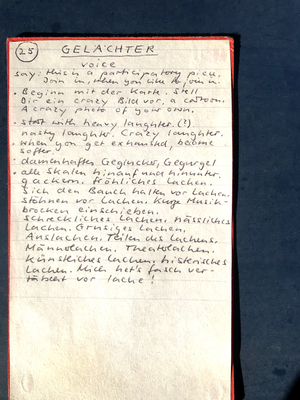 25 GELÄCHTER
voice
say: this is a participatory piece.
Join in, when you like to join in.
• Beginn mit der Karte. Stell
Dir ein crazy Bild vor, a cartoon.
A crazy photo of your own.
• start with heavy laughter. (?)
nasty laughter. Crazy laughter.
• when you get exhausted, become
softer.
• damenhaftes Gegincker, Gegurgel
• alle Skalen hinauf und hinunter.
Gackern. Fröhliches Lachen.
Sich den Bauch halten vor Lachen.
stöhnen vor Lachen. Kurze Musik-
brocken einschieben.
Schreckliches Lachen. Hässliches
Lachen. Grusiges Lachen.
Auslachen. Teilen des Lachens.
Männerlachen. Theaterlachen.
Künstliches Lachen. histerisches
Lachen. Mich het's fasch ver-
tätscht vor lache!